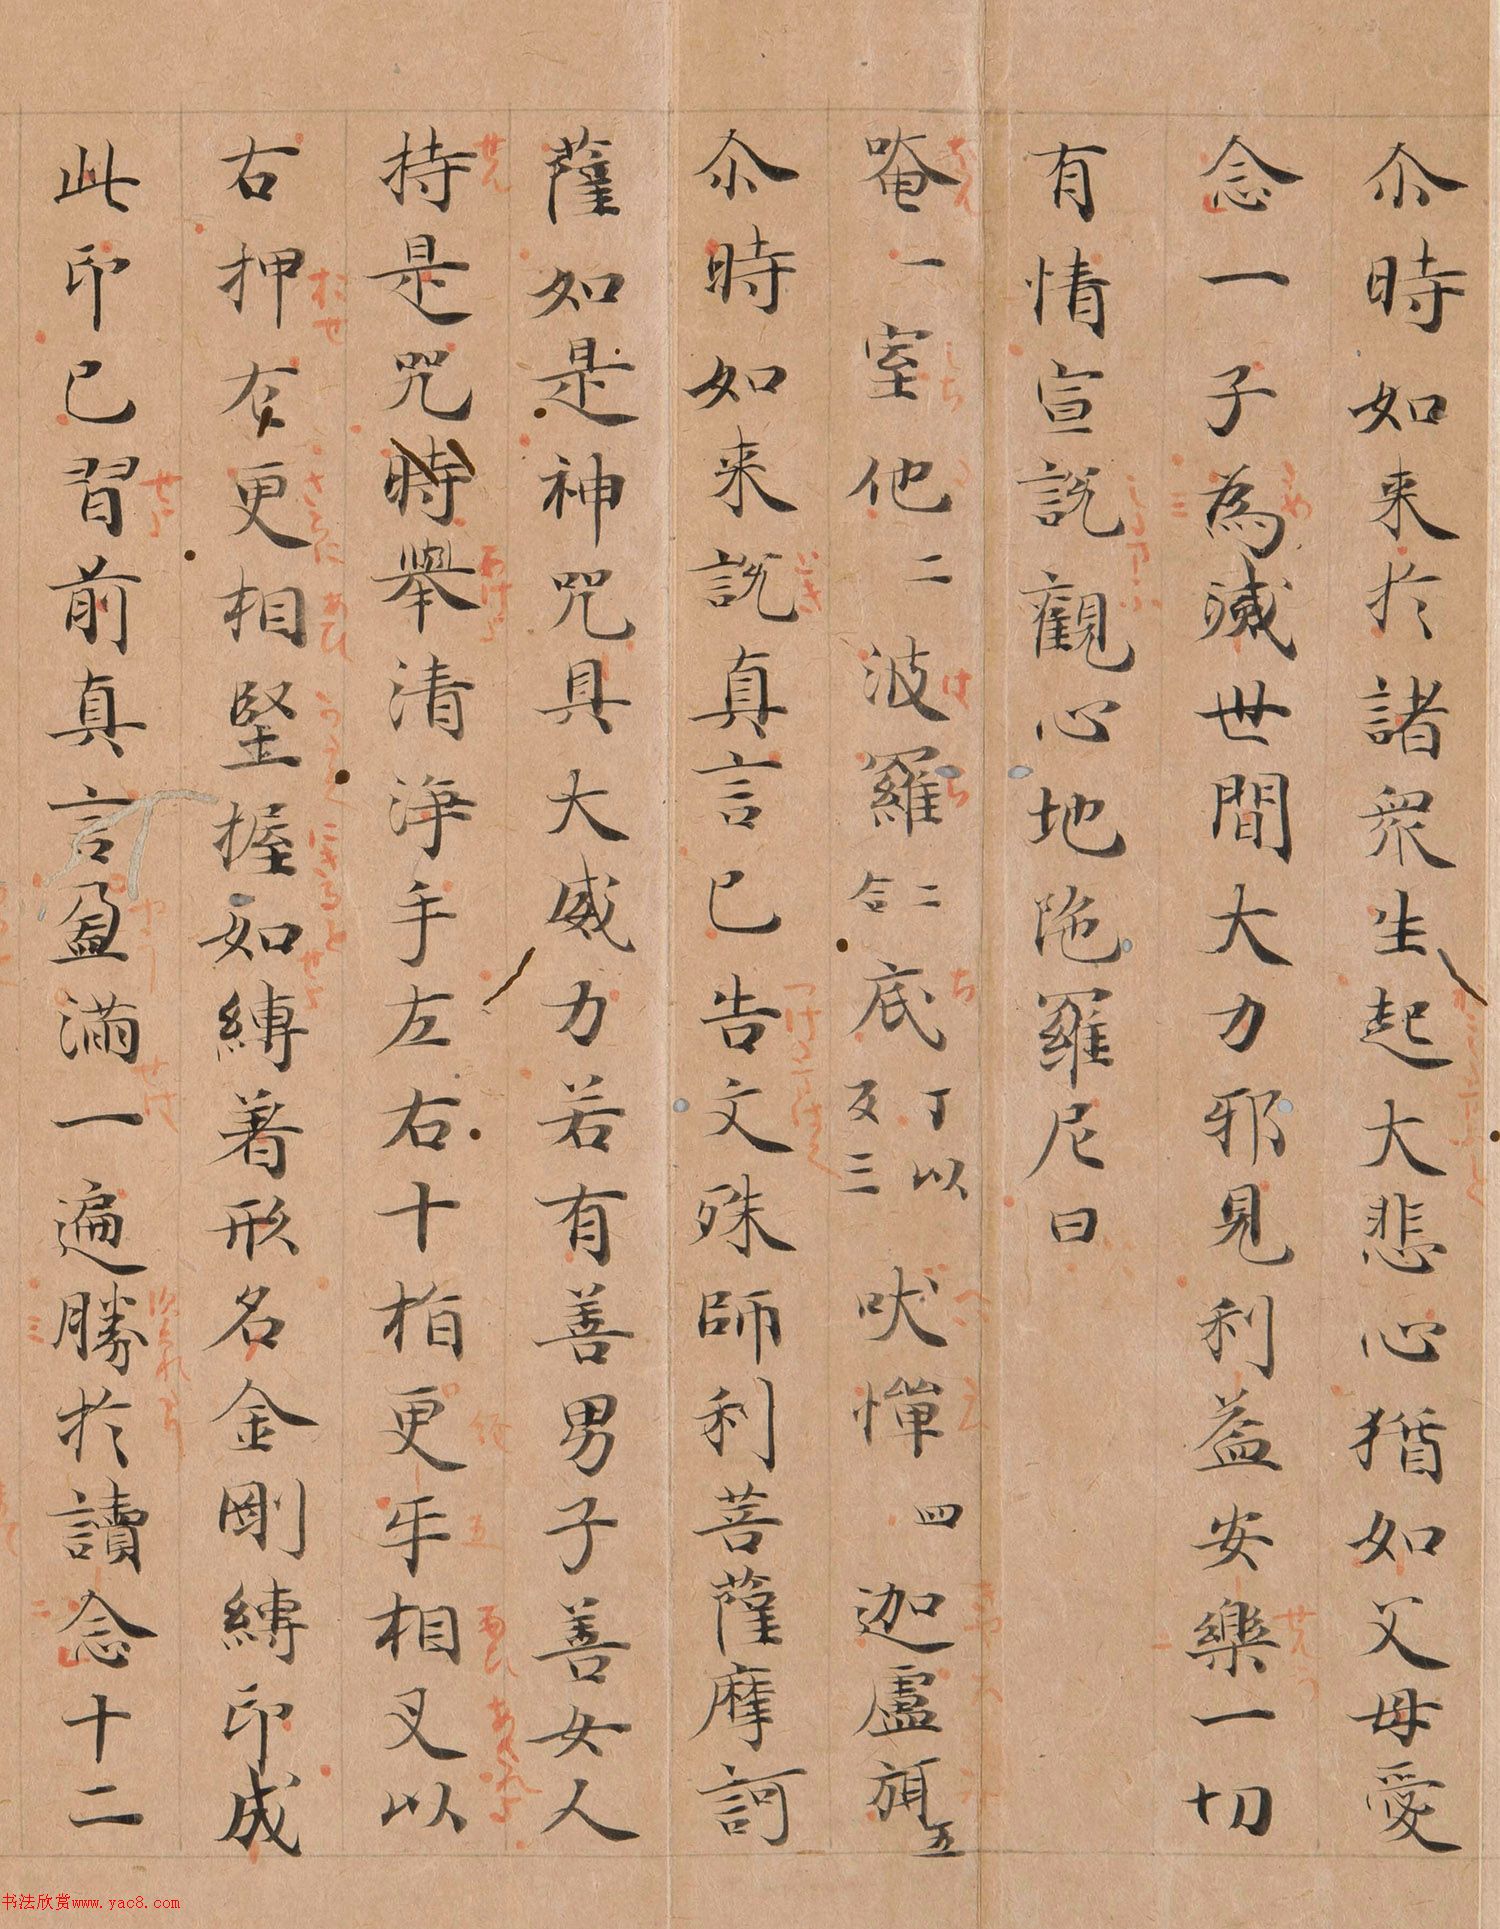 尒時如来於諸衆生起大悲心猶如父母愛
念一子為滅世間大力邪見利益安樂一切
有情宣説觀心地陁羅尼曰
唵一室他二波羅二合底丁以反三吠憚四迦盧弭五
尒時如来説真言已告文殊師利菩薩摩訶
薩如是神咒具大威力若有善男子善女人
持是咒時舉清浄手左右十指更牙相叉以
右押左更相堅握如縛著形名金剛縛印成
此印已習前真言盈滿一遍勝於讀念十二
书法欣赏www.yac8.com